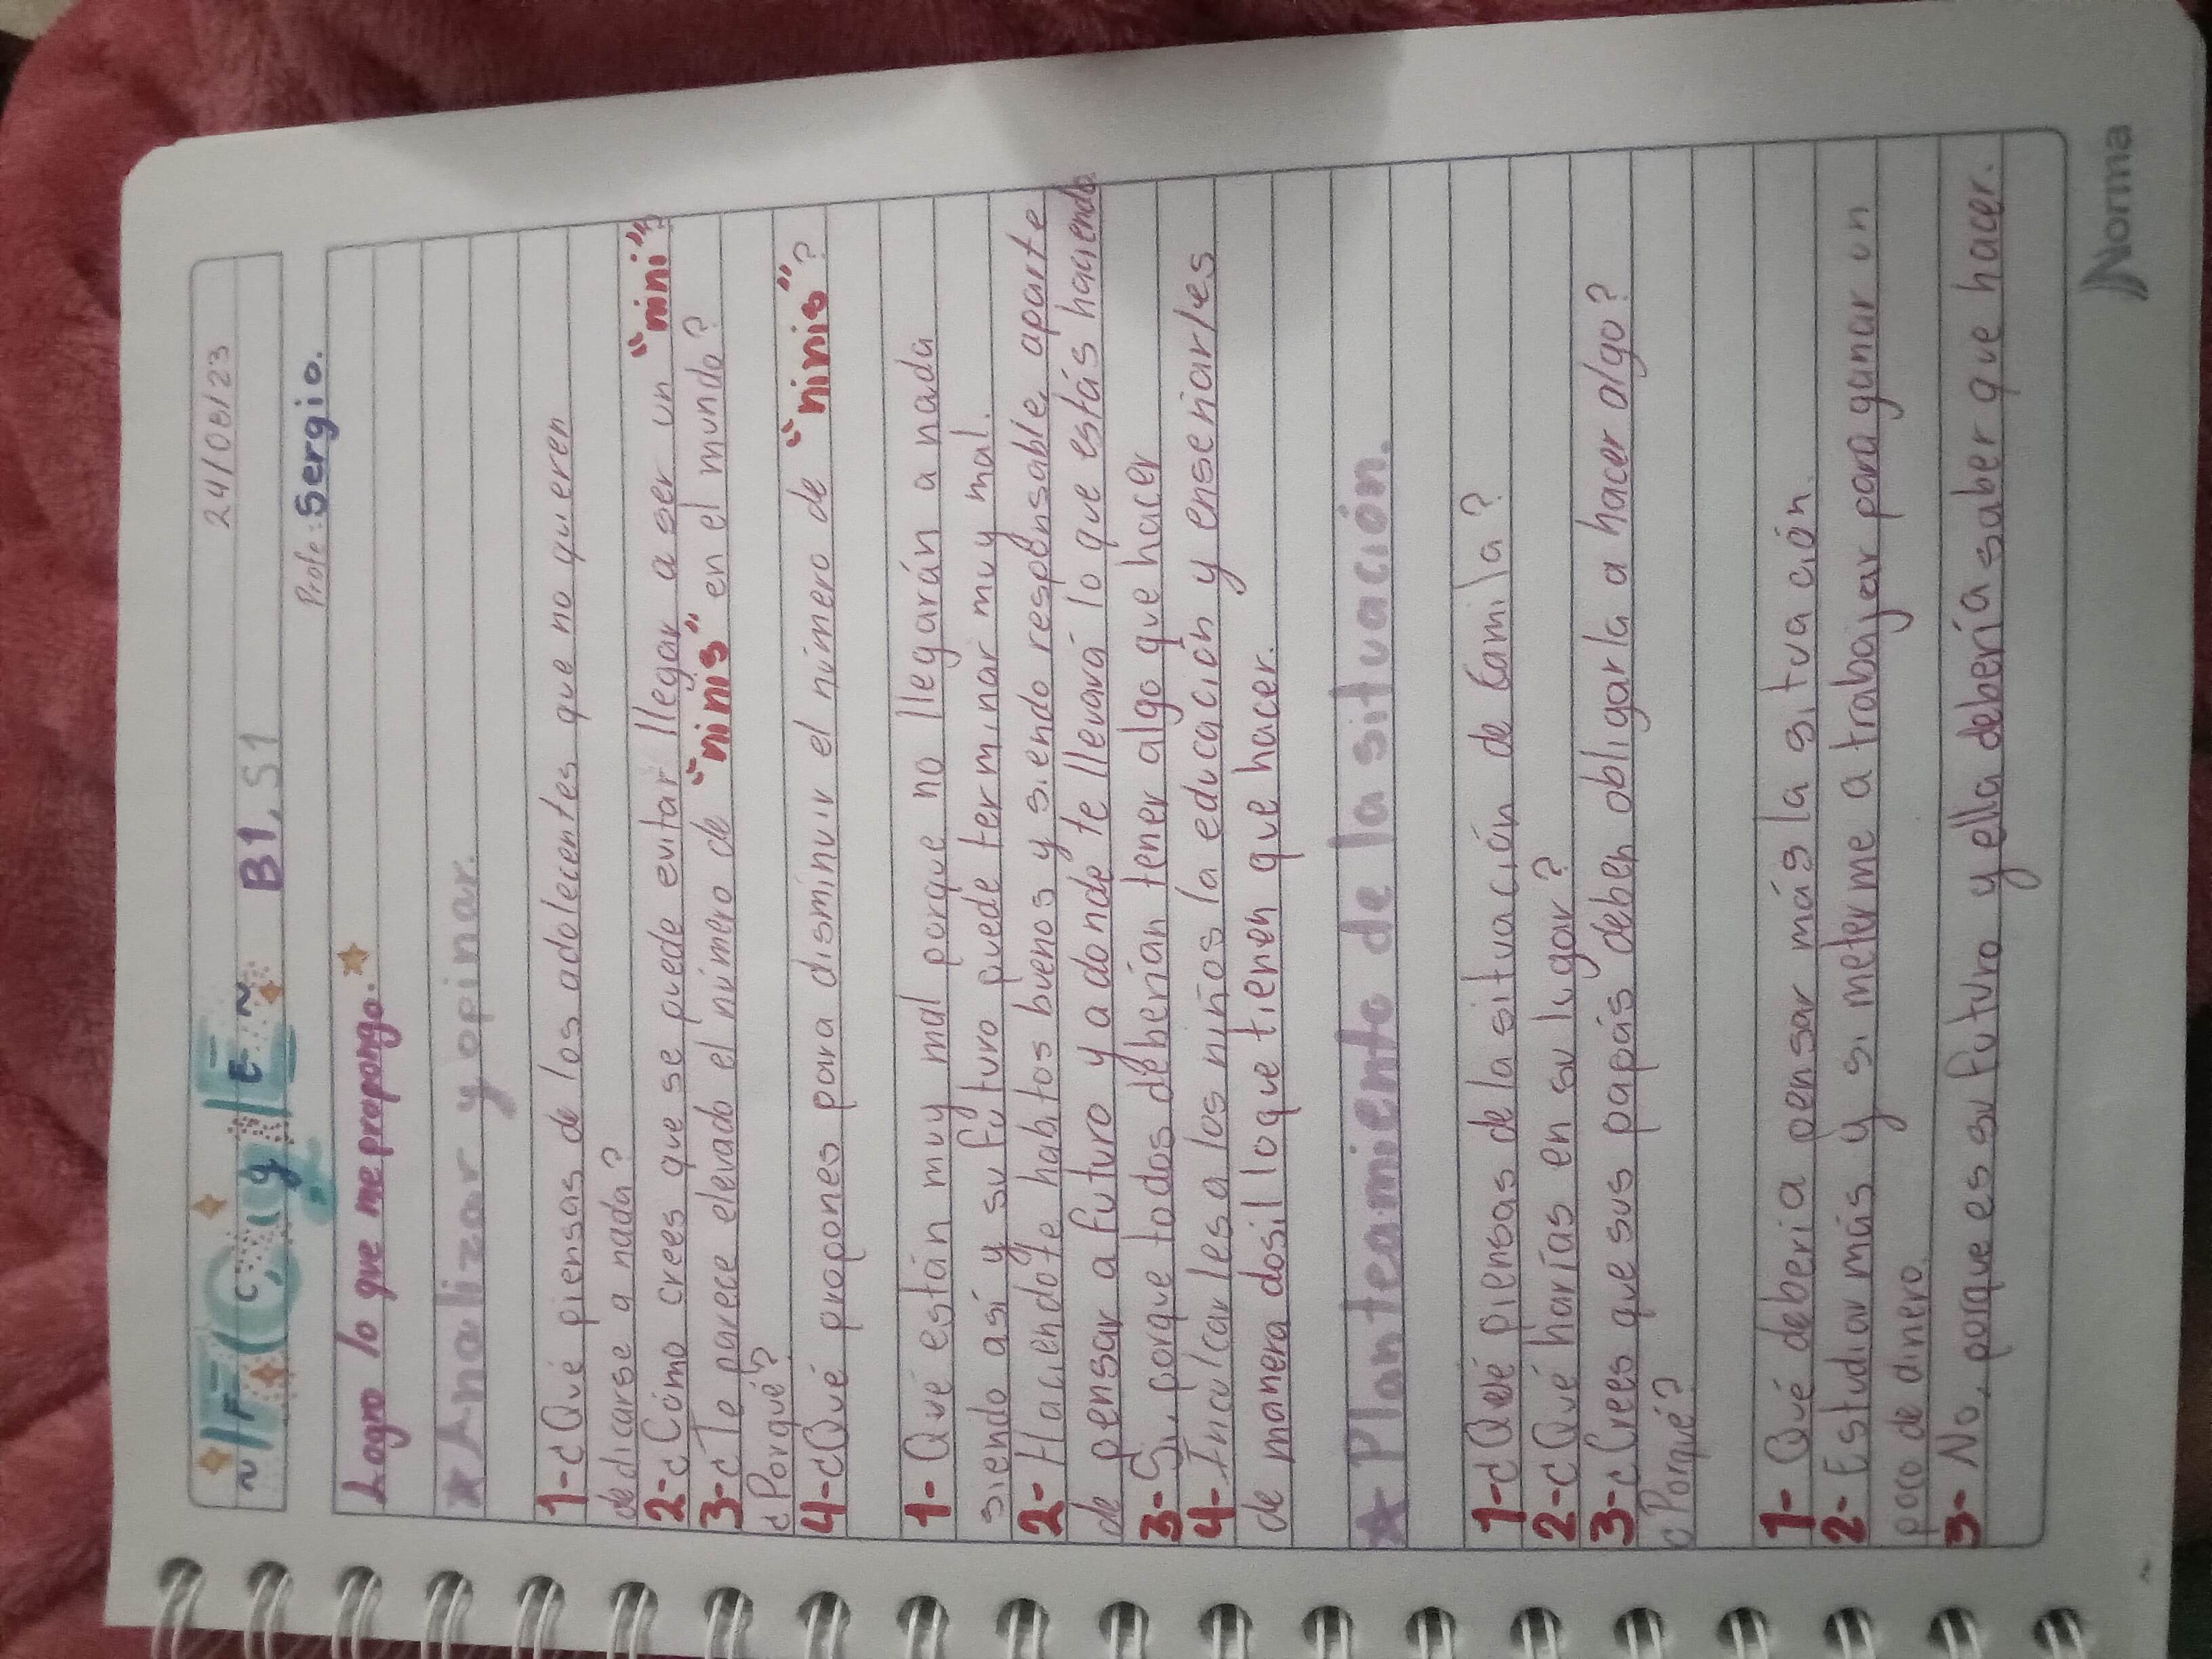 24/08/23
~ F C, y E ~ B1, S1
Profe: Sergio.
Logro lo que me propongo.
Analizar y opinar.
1-¿Qué piensas de los adolecentes que no queren
dedicarse a nada?
2-¿Cómo crees que se puede evitar llegar a ser un "nini"?
3-¿Te parece elevado el número de "ninis" en el mundo?
¿Porqué?
4-¿Qué propones para disminuir el número de "ninis"?
1- Qué están muy mal porque no llegarán a nada
siendo así y su futuro puede terminar muy mal.
2- Haciendote habitos buenos y siendo responsable, aparte
de pensar a futuro y a donde te llevará lo que estás haciendo
3- Si, porque todos deberían tener algo que hacer
4- Inculcarles a los niños la educación y enseñarles
de manera dosil lo que tienen que hacer.
Planteamiento de la situación.
1-¿Qué piensas de la situación de Camila?
2-¿Qué harías en su lugar?
3-¿Crees que sus papás deben obligarla a hacer algo?
¿Porqué?
1- Qué debería pensar más la situación.
2- Estudiar más y si meterme a trabajar para ganar un
poco de dinero.
3- No, porque es su futuro y ella debería saber que hacer.
Norma